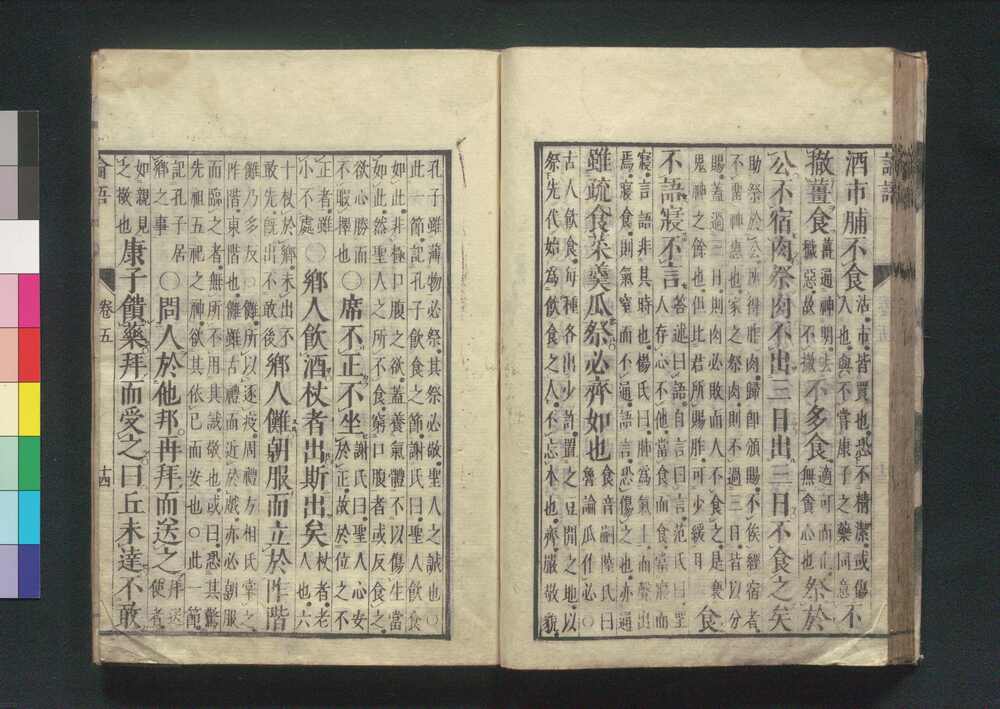 論語
酒市脯不食沽市皆買也恐不精潔或傷人也與不嘗康子之藥同意不
撤薑食薑通神明去穢惡故不撤不多食適可而止無貪心也祭於
公不宿肉祭肉不出三日出三日不食之矣
助祭於公所得胙肉歸即頒賜不俟經宿者
不留神惠也家之祭肉則不過三日皆以分
賜蓋過三日則肉必敗而人不食之是褻
鬼神之餘也但比君所賜胙可少緩耳食
不語寢不言答述曰語自言曰言范氏曰聖人存心不他當食而食當寢而
寢言語非其時也楊氏曰肺為氣主而聲出
焉寢食則氣窒而不通語言恐傷之也亦通
雖疏食菜羹瓜祭必齊如也食音嗣陸氏曰魯論瓜作必〇
古人飲食每種各出少許置之豆間之地以
祭先代始為飲食之人不忘本也齊嚴敬貌
孔子雖薄物必祭其祭必敬聖人之誠也〇
此一節記孔子飲食之節謝氏曰聖人飲食
如此非極口腹之欲蓋養氣體不以傷生當
如此然聖人之所不食窮口腹者或反食之
欲心勝而不暇擇也〇席不正不坐謝氏曰聖人心安於正故於位之不
正者雖小不處〇鄉人飲酒杖者出斯出矣杖者老人也六
十杖於鄉未出不敢先既出不敢後鄉人儺朝服而立於阼階
儺乃多反〇儺所以逐疫周禮方相氏掌之
阼階東階也儺雖古禮而近於戲亦必朝服
而臨之者無所不用其誠敬也或曰恐其驚
先祖五祀之神欲其依己而安也〇此一節
記孔子居鄉之事〇問人於他邦再拜而送之拜送使者
如親見之敬也康子饋藥拜而受之曰丘未達不敢
論語 卷五 十四